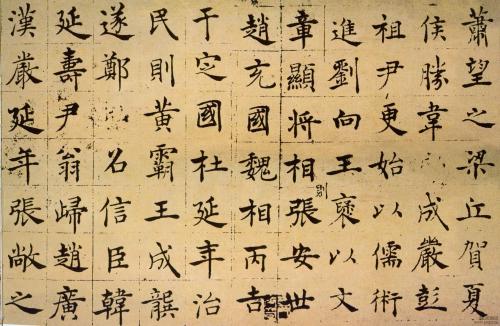 蕭望之梁丘賀夏
侯勝韋成嚴彭
祖尹更始以儒術
進劉向王褒以文
章顯將相張安世
趙充國魏相丙吉
于定國杜延年治
民則黃霸王成龔
遂鄭召信臣韓
延壽尹翁歸趙廣
漢嚴延年張敞之